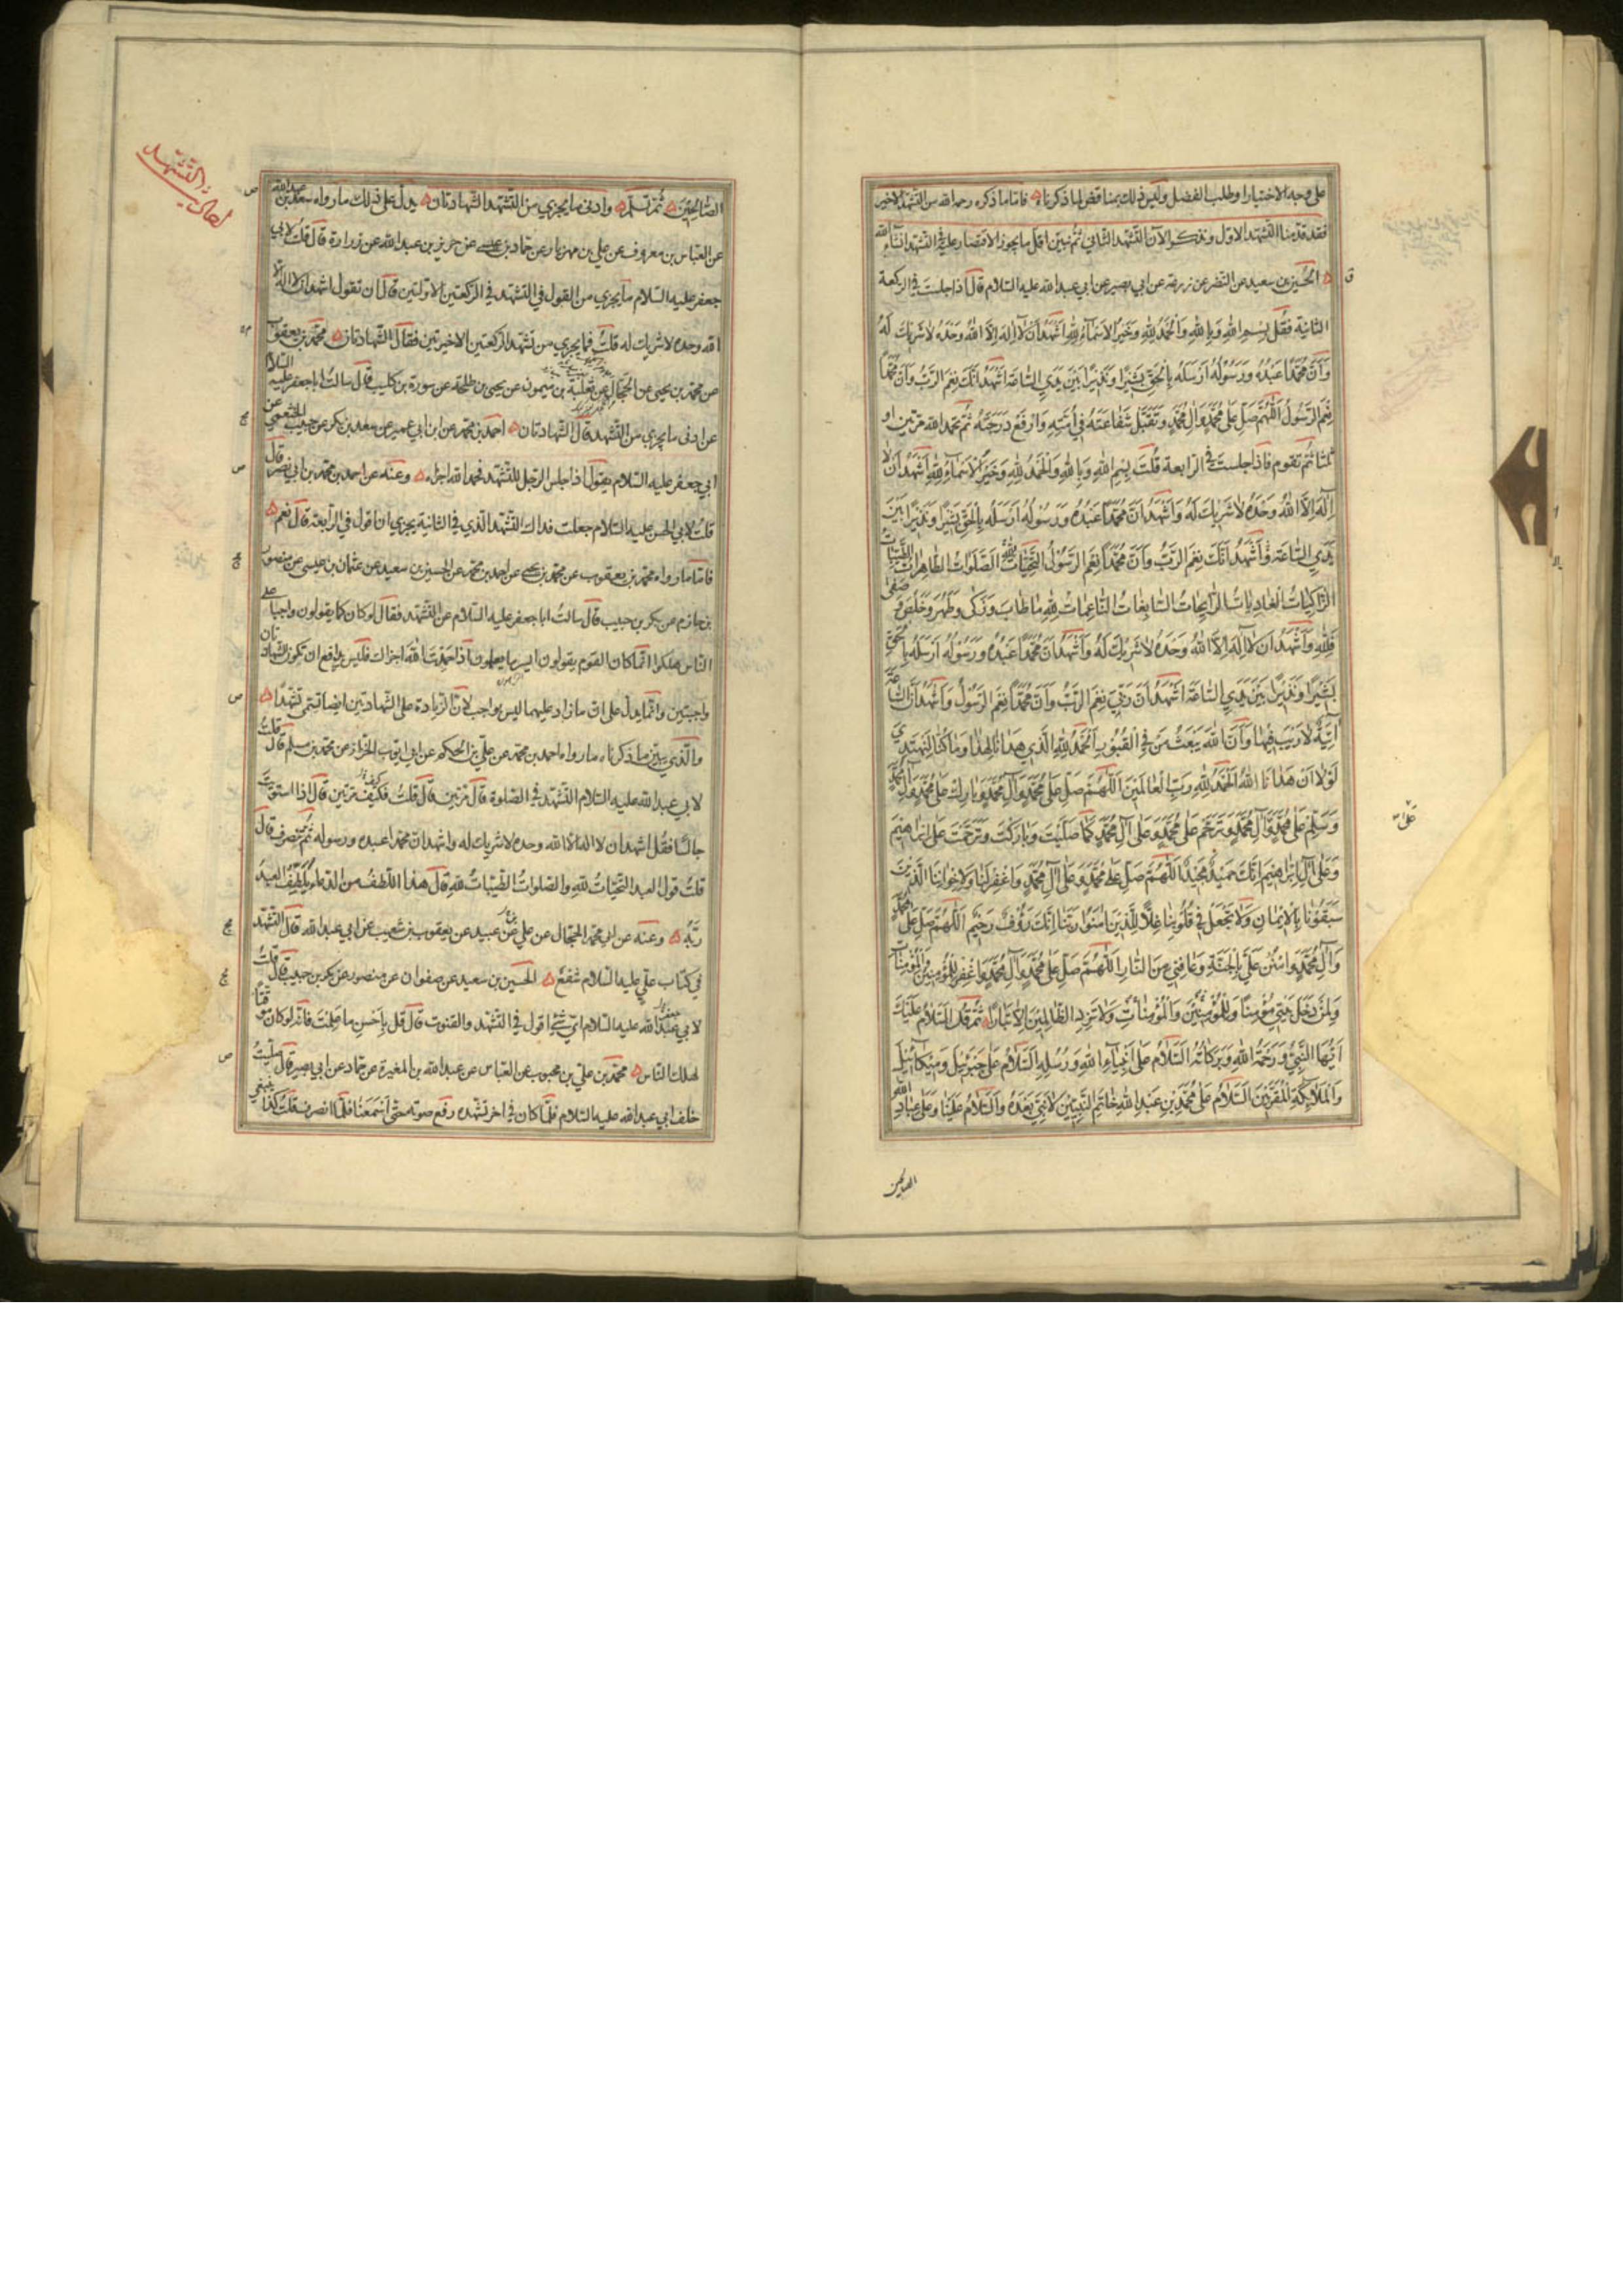 على وجه الاختيار وطلب الفضل وليس ذلك بمناقض لما ذكرناه فاما ما ذكره رحمه الله من التشهد الاخير
فقد قدمنا التشهد الاول ونذكر الآن التشهد الثاني ثم نبين اقل ما يجوز الاقتصار عليه في التشهد ان شاء الله
ق
الحسين بن سعيد عن النضر عن زرعة عن ابي بصير عن ابي عبد الله عليه السلام قال اذا جلست في الركعة
الثانية فقل بسم الله وبالله والحمد لله وخير الاسماء لله اشهد ان لا اله الا الله وحده لا شريك له
وان محمدا عبده ورسوله ارسله بالحق بشيرا ونذيرا بين يدي الساعة اشهد انك نعم الرب وان محمدا
نعم الرسول اللهم صل على محمد وآل محمد وتقبل شفاعته في امته وارفع درجته ثم تحمد الله مرتين او
ثلثا ثم تقوم فاذا جلست في الرابعة قلت بسم الله وبالله والحمد لله وخير الاسماء لله اشهد ان لا
اله الا الله وحده لا شريك له واشهد ان محمدا عبده ورسوله ارسله بالحق بشيرا ونذيرا بين
يدي الساعة واشهد انك نعم الرب وان محمدا نعم الرسول التحيات لله الصلوات الطاهرات الطيبات
الزاكيات الغاديات الرايحات السابغات الناعمات لله ما طاب وزكى وطهر وخلص وصفى
فلله واشهد ان لا اله الا الله وحده لا شريك له واشهد ان محمدا عبده ورسوله ارسله بالحق
بشيرا ونذيرا بين يدي الساعة اشهد ان ربي نعم الرب وان محمدا نعم الرسول واشهد ان الساعة
آتية لا ريب فيها وان الله يبعث من في القبور الحمد لله الذي هدانا لهذا وما كنا لنهتدي
لولا ان هدانا الله الحمد لله رب العالمين اللهم صل على محمد وآل محمد وبارك على محمد وآل محمد
وسلم على محمد وآل محمد وترحم على محمد وعلى آل محمد كما صليت وباركت وترحمت على ابراهيم
وعلى آل ابراهيم انك حميد مجيد اللهم صل على محمد وعلى آل محمد واغفر لنا ولاخواننا الذين
سبقونا بالايمان ولا تجعل في قلوبنا غلا للذين آمنوا ربنا انك رؤف رحيم اللهم صل على محمد
وآل محمد وامنن علي بالجنة وعافني من النار اللهم صل على محمد وآل محمد واغفر للمؤمنين والمؤمنات
ولمن دخل بيتي مؤمنا وللمؤمنين والمؤمنات ولا تزد الظالمين الا تبارا ثم قل السلام عليك
ايها النبي ورحمة الله وبركاته السلام على انبياء الله ورسله السلام على جبرئيل وميكائيل
والملائكة المقربين السلام على محمد بن عبد الله خاتم النبيين لا نبي بعده والسلام علينا وعلى عباد الله
الصالحين
الصالحين ثم تسلم وادنى ما يجزي من التشهد الشهادتان يدل على ذلك ما رواه سعد بن عبد الله
عن العباس بن معروف عن علي بن مهزيار عن حماد بن عيسى عن حريز بن عبد الله عن زرارة قال قلت لابي
جعفر عليه السلام ما يجزي من القول في التشهد في الركعتين الاولتين قال ان تقول اشهد ان لا اله الا
الله وحده لا شريك له قلت فما يجزي من تشهد الركعتين الاخيرتين فقال الشهادتان محمد بن يعقوب
عن محمد بن يحيى عن الحجال عن ثعلبة بن ميمون عن يحيى بن طلحة عن سورة بن كليب قال سالت ابا جعفر عليه السلام
عن ادنى ما يجزي من التشهد قال الشهادتان احمد بن محمد عن ابن ابي عمير عن سعد بن بكر عن حبيب الخثعمي عن
ابي جعفر عليه السلام يقول اذا جلس الرجل للتشهد فحمد الله اجزاه وعنه عن احمد بن محمد بن ابي نصر قال
قلت لابي الحسن عليه السلام جعلت فداك التشهد الذي في الثانية يجزي ان اقول في الرابعة قال نعم
فاما ما رواه محمد بن يعقوب عن محمد بن يحيى عن احمد بن محمد عن الحسين بن سعيد عن عثمان بن عيسى عن منصور
بن حازم عن بكر بن حبيب قال سالت ابا جعفر عليه السلام عن التشهد فقال لو كان كما يقولون واجبا على
الناس هلكوا انما كان القوم يقولون ايسر ما يعلمون اذا حمدت الله اجزاك فليس يدافع ان تكون الشهادتان
واجبتين وانما يدل على ان ما زاد عليهما ليس بواجب لان الزيادة على الشهادتين ايضا تسمى تشهدا
والذي يبين ما ذكرناه ما رواه احمد بن محمد عن علي بن الحكم عن ابي ايوب الخزاز عن محمد بن مسلم قال قلت
لابي عبد الله عليه السلام التشهد في الصلوة قال مرتين قال قلت فكيف مرتين قال اذا استويت
جالسا فقل اشهد ان لا اله الا الله وحده لا شريك له واشهد ان محمدا عبده ورسوله ثم تنصرف قال
قلت قول العبد التحيات لله والصلوات الطيبات لله قال هذا اللطف من الدعاء يلطف العبد
ربه وعنه عن ابي محمد الحجال عن علي بن عبيد عن يعقوب بن شعيب عن ابي عبد الله قال التشهد
في كتاب علي عليه السلام شفع الحسين بن سعيد عن صفوان عن منصور عن بكر بن حبيب قال قلت
لابي عبد الله عليه السلام اي شيء اقول في التشهد والقنوت قال قل باحسن ما علمت فانه لو كان موقتا
لهلك الناس محمد بن علي بن محبوب عن العباس عن عبد الله بن المغيرة عن حماد عن ابي بصير قال صليت
خلف ابي عبد الله عليه السلام فلما كان في آخر تشهده رفع صوته حتى اسمعنا فلما انصرف قلت كذا ينبغي